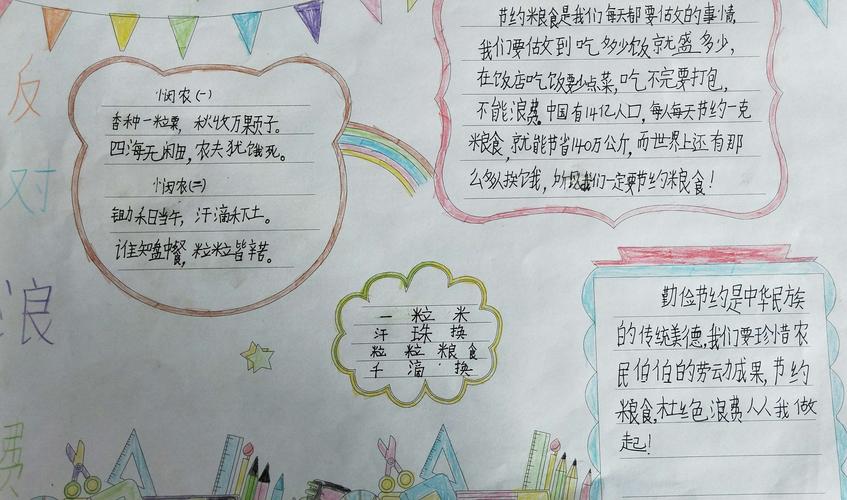 反
对
浪
费
悯农(一)
春种一粒粟，秋收万颗子。
四海无闲田，农夫犹饿死。
悯农(二)
锄禾日当午，汗滴禾下土。
谁知盘中餐，粒粒皆辛苦。
节约粮食是我们每天都要做的事情，
我们要做到吃多少饭就盛多少，
在饭店吃饭要少点菜，吃不完要打包，
不能浪费。中国有14亿人口，每人每天节约一克
粮食，就能节省140万公斤，而世界上还有那
么多人挨饥饿，所以我们一定要节约粮食！
一粒米
汗珠换
粒粒粮食
千滴换
勤俭节约是中华民族
的传统美德，我们要珍惜农
民伯伯的劳动成果，节约
粮食，杜绝浪费人人我做
起！